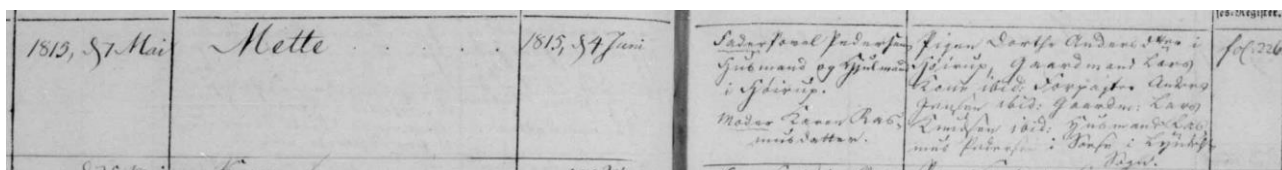 1815, d 7 Mai
Mette . . . . . .
1815, d 4 Juni
Fader Povel Pedersen
Huusmand og Hjulmand
i Höirup.
Moder Karen Ras-
musdatter.
Pigen Dorthe Anders dtter i
Höirup, Gaardmand Lars
Kone ibid: Forpagter Anders
Jensen ibid: Gaardm: Lars
Knudsen ibid: Huusmand Ras
mus Pedersen i i
Sogn.
fol: 226